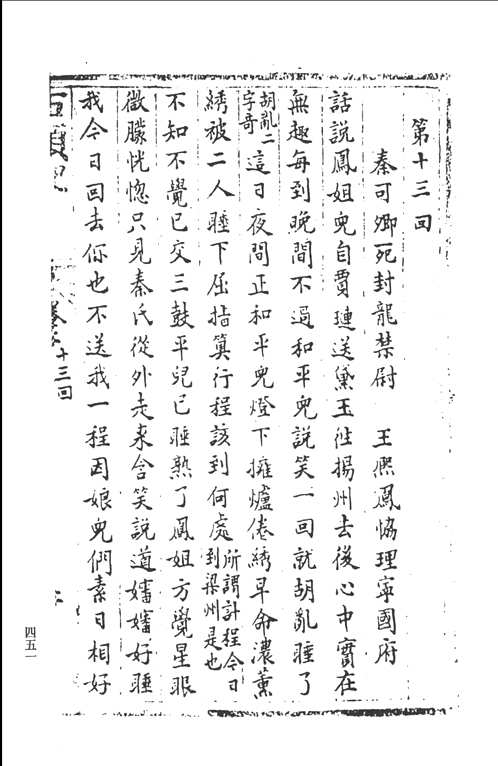 第十三回
秦可卿死封龍禁尉　王熈鳳協理寧國府
話說鳳姐兒自賈璉送黛玉徃揚州去後心中實在
無趣每到晚間不過和平兒說笑一回就胡亂睡了
胡亂二字奇這日夜間正和平兒燈下擁爐倦綉早命濃薰
綉被二人睡下屈指算行程該到何處所謂計程今日到梁州是也
不知不覺已交三鼓平兒已睡熟了鳳姐方覺星眼
微朦恍惚只見秦氏從外走來含笑說道嬸嬸好睡
我今日回去你也不送我一程因娘兒們素日相好
石頭記
十三回
四五一